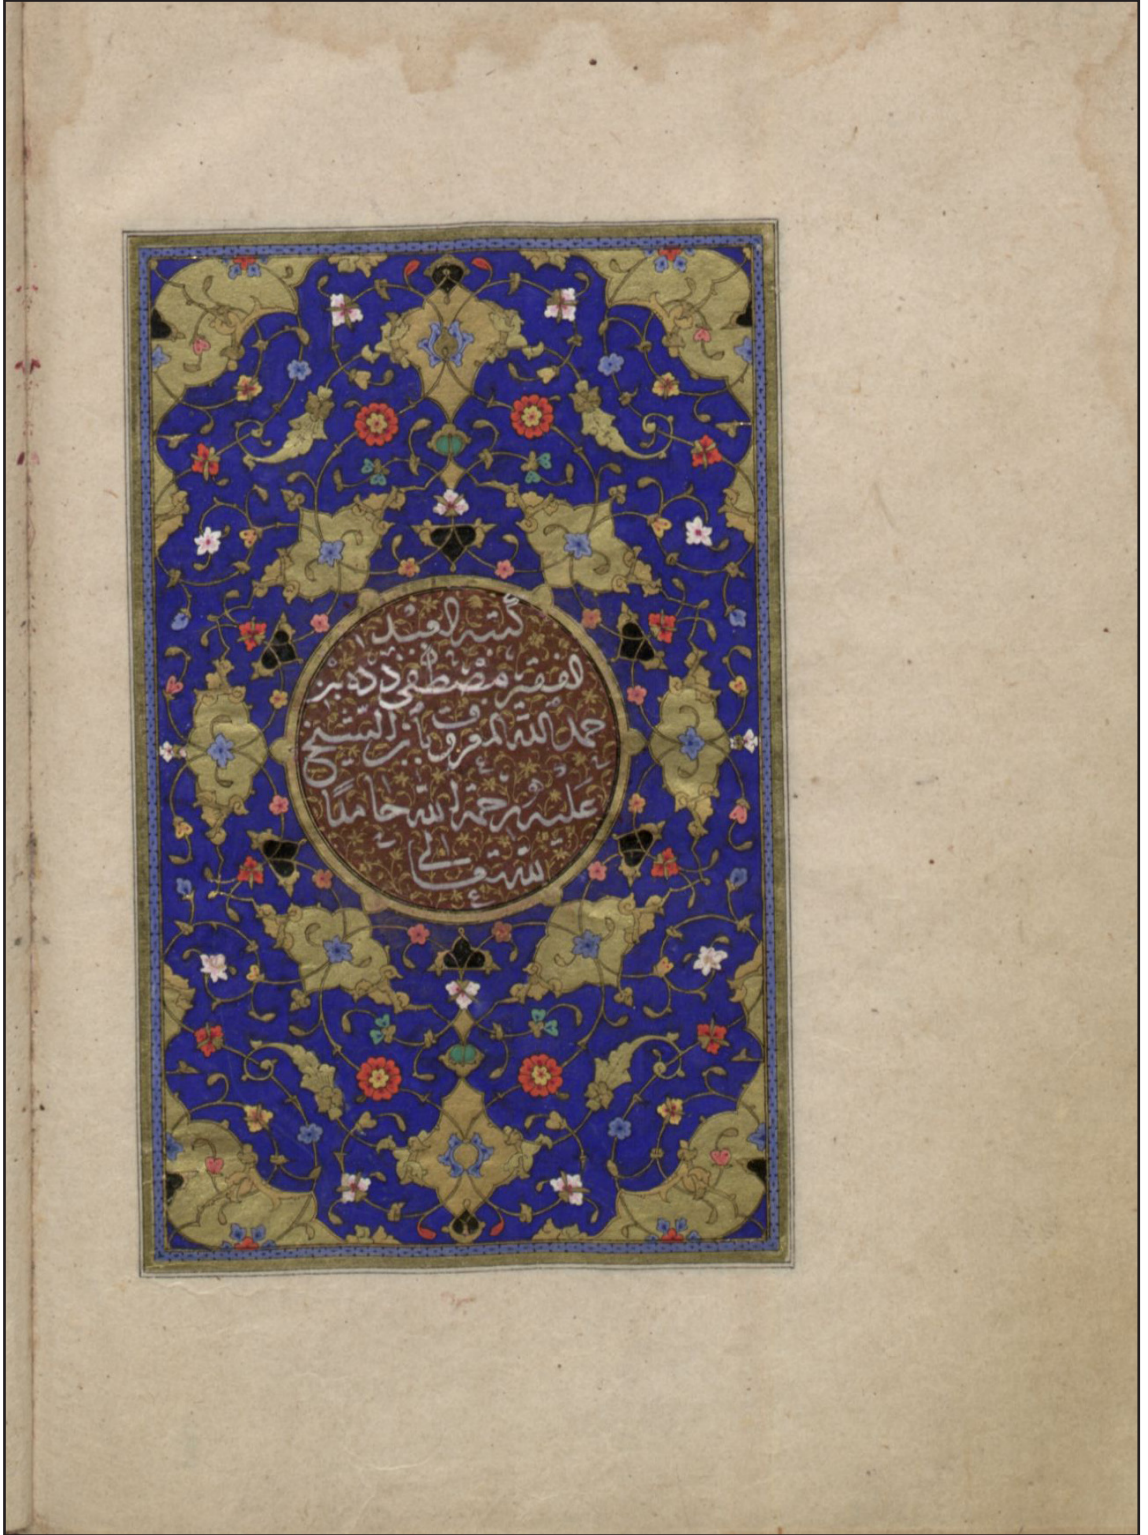 كتبه العبد
الفقير مصطفى دده بن
حمد الله المعروف بابن الشيخ
عليه رحمة الله حامدا
لله تعالى